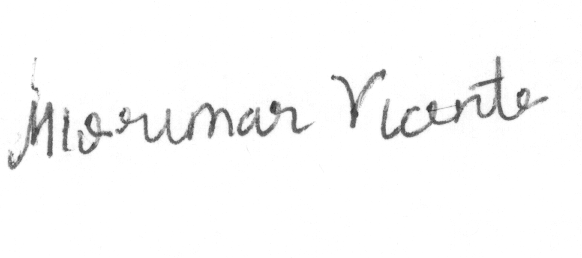 Miorumar Vicente